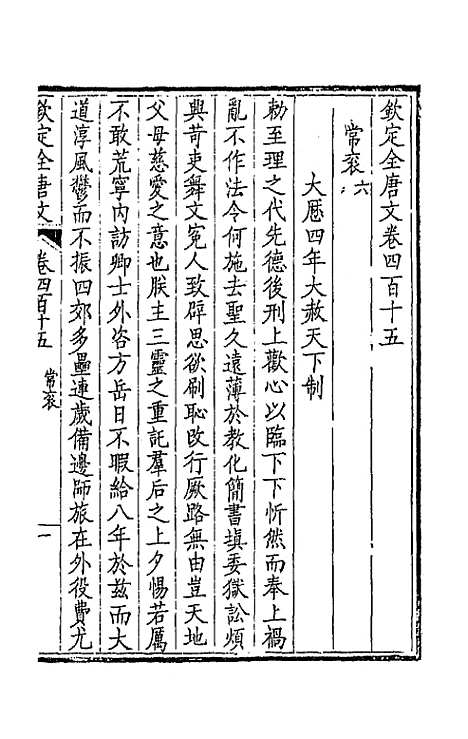 欽定全唐文卷四百十五
常袞六
大歷四年大赦天下制
勅至理之代先德後刑上歡心以臨下下忻然而奉上禍
亂不作法令何施去聖久遠薄於教化簡書塡委獄訟煩
興苛吏舞文寃人致辟思欲刷恥改行厥路無由豈天地
父母慈愛之意也朕主三靈之重託羣后之上夕惕若厲
不敢荒寧內訪卿士外咨方岳日不暇給八年於茲而大
道淳風鬱而不振四郊多壘連歲備邊師旅在外役費尤
欽定全唐文 卷四百十五 常袞 一